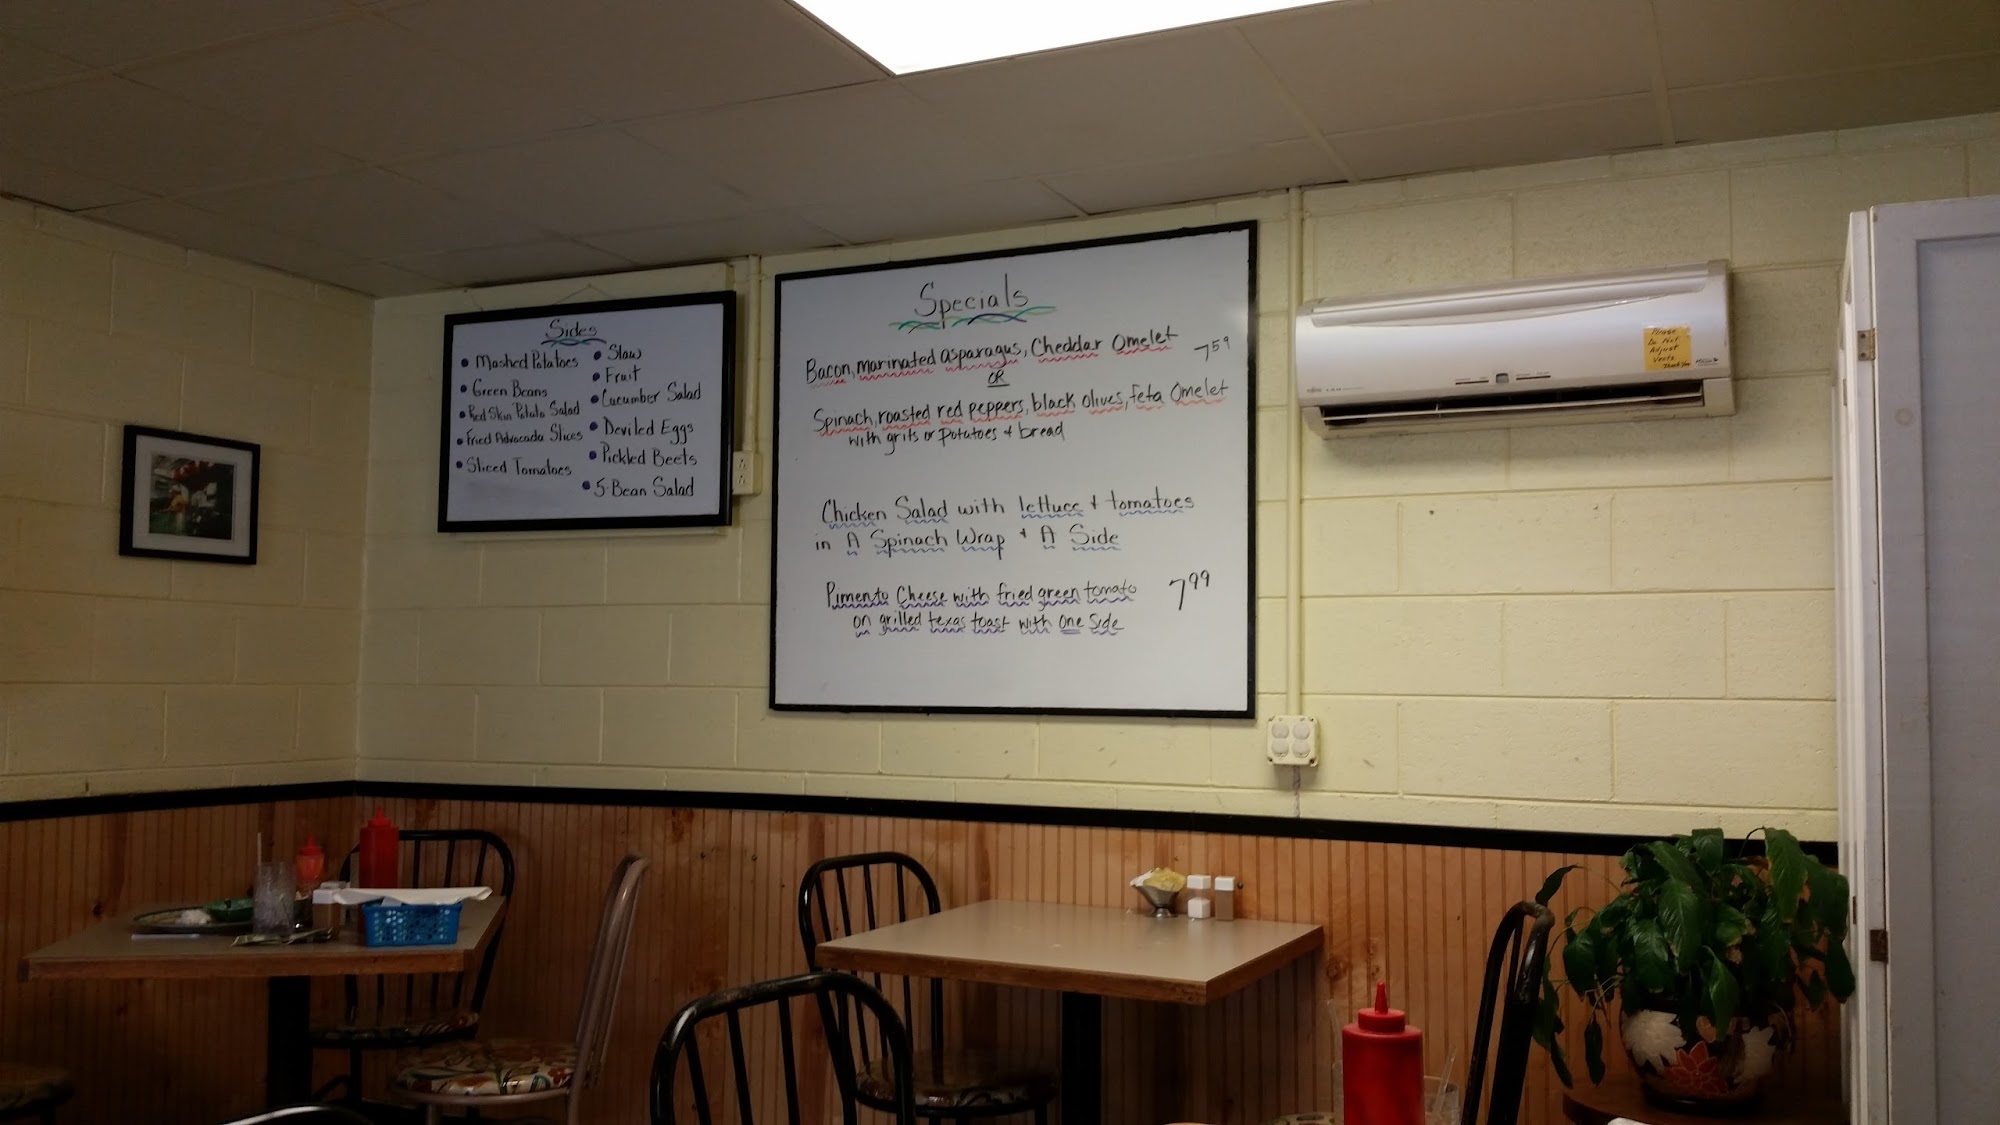 Sides
Mashed Potatoes
Green Beans
Red Skin Potato Salad
Fried Advocada Slices
Sliced Tomatoes
Slaw
Fruit
Cucumber Salad
Deviled Eggs
Pickled Beets
5-Bean Salad
Specials
Bacon, marinated asparagus, Cheddar Omelet 7 59
OR
Spinach, roasted red peppers, black olives, feta Omelet
with grits or potatoes + bread
Chicken Salad with lettuce + tomatoes
in A Spinach Wrap + A Side
Pimento Cheese with fried green tomato 7 99
on grilled texas toast with one side
Please
Do Not
Adjust
Vents
Thank You